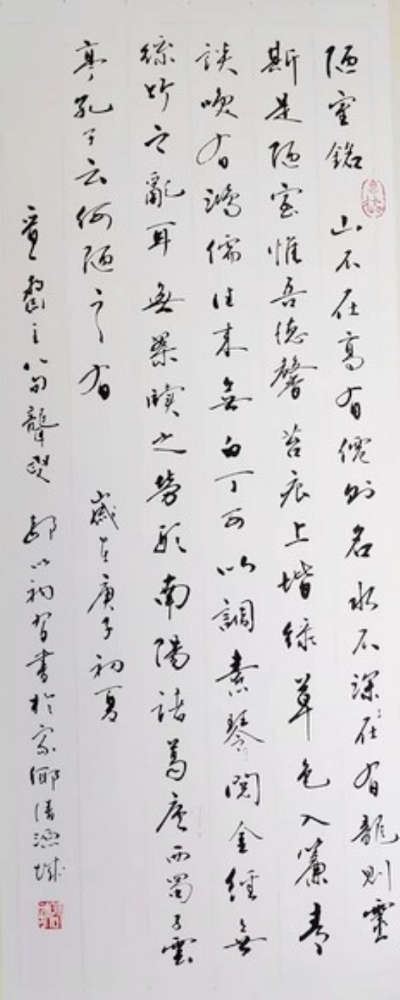 陋室銘 山不在高有僊则名水不深在有龍则靈
斯是陋室惟吾德馨苔痕上堦綠草色入簾青
談咲有鴻儒往来無白丁可以調素琴閱金經無
絲竹之亂耳無案牘之勞形南陽諸葛廬西蜀子雲
亭孔子云何陋之有 歲在庚子初夏
聾叟 書於家鄉清